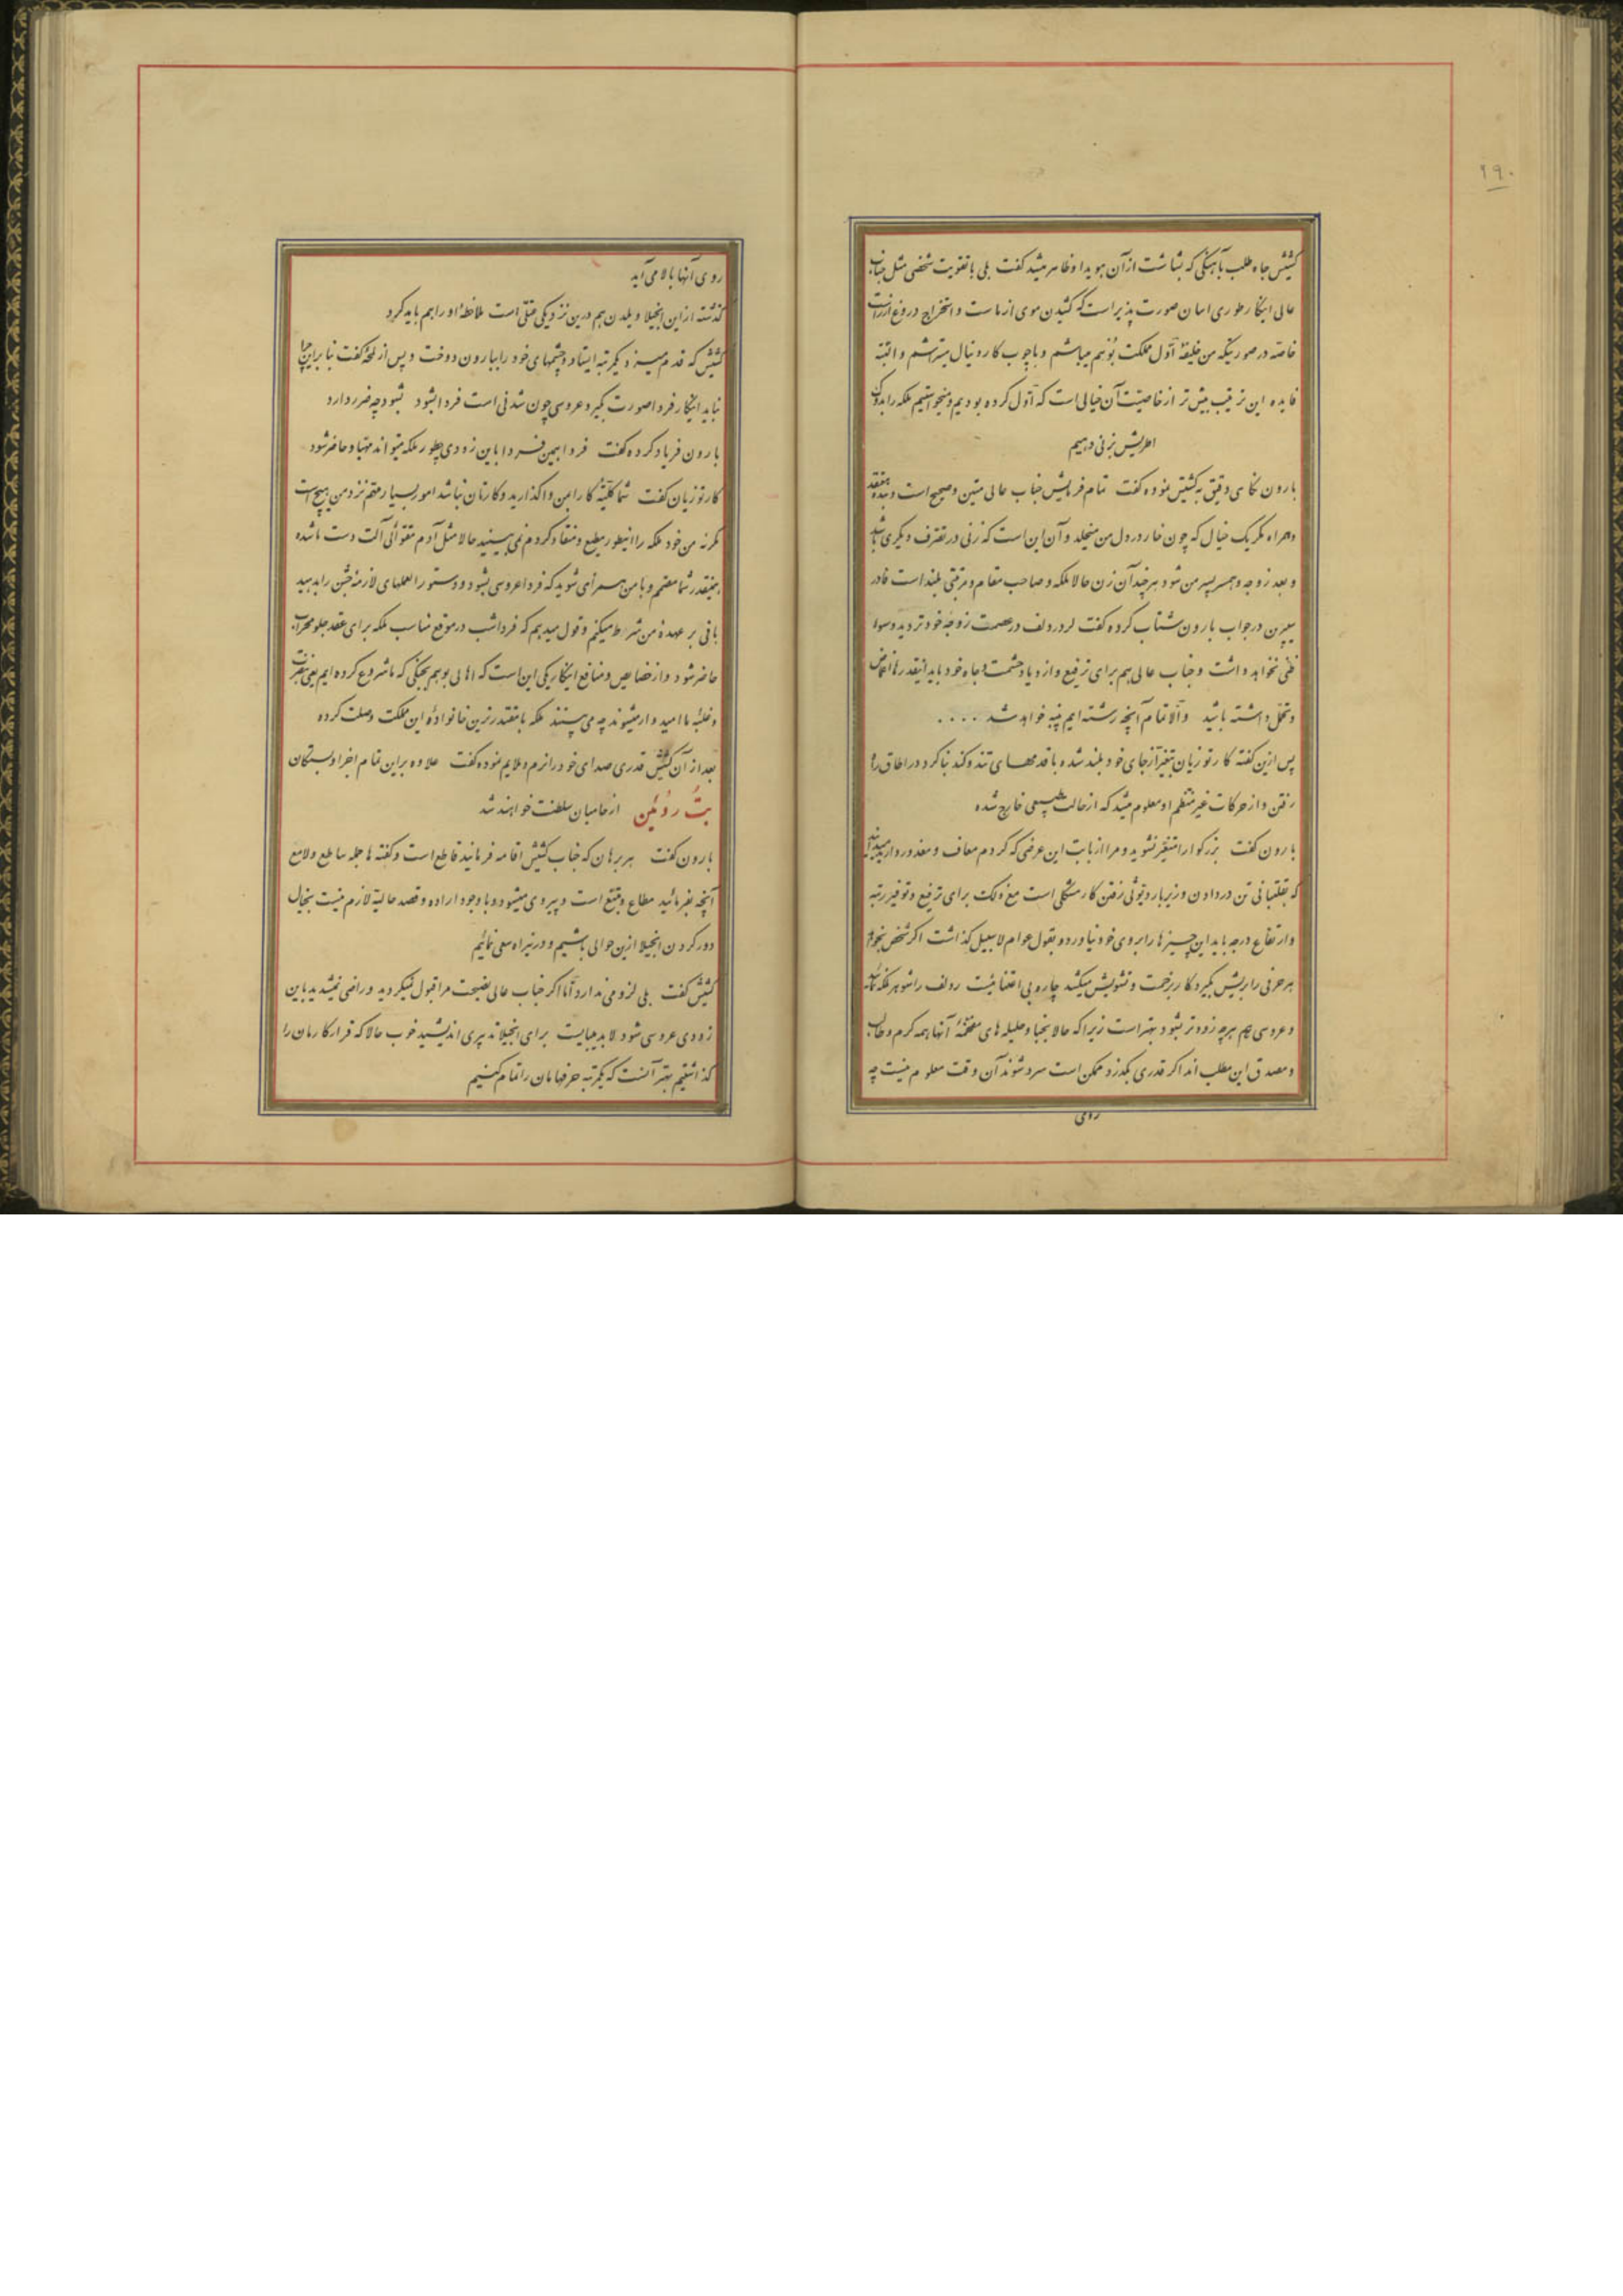 ۲۹۰
کشیش جاه طلب بآهنگی که بشاشت از آن هویدا و ظاهر میشد گفت بلی با تقویت شخصی مثل جناب
عالی اینکار طوری اسان صورت پذیر است که کشیدن موی از ماست و استخراج دروغ از راست
خاصه در صورتیکه من خلیفهٔ اول مملکت بُوهیم میباشم و با چوب کاردینال میتراشم و البته
فایده این ترتیب بیش تر از خاصیت آن خیالی است که اول کرده بودیم و میخواستیم ملکه را بدوک
اطریش بزنی دهیم
بارون نگاهی دقیق به کشیش نموده گفت تمام فرمایش جناب عالی متین و صحیح است و بنده معتقد
و همراه مگر یک خیال که چون خار در دل من میخلد و آن این است که زنی در تصرف دیگری باشد
و بعد زوجه و همسر پسر من شود هر چند آن زن حالا ملکه و صاحب مقام و مرتبتی بلند است قادر
پییرن در جواب بارون شتاب کرده گفت لردرولف در عصمت زوجه خود تردید و سوء
ظنی نخواهد داشت و جناب عالی هم برای ترفیع و ازدیاد حشمت و جاه خود باید اینقدرها اغماض
و تحمل داشته باشید و الا تمام آنچه رشته ایم پنبه خواهد شد . . . .
پس ازین گفته کارتوزیان بتغیر از جای خود بلند شده با قدمهای تند و کند بنا کرد در اطاق راه
رفتن و از حرکات غیر منتظم او معلوم میشد که از حالت طبیعی خارج شده
بارون گفت بزرگوارا متغیر نشوید و مرا از بابت این عرضی که کردم معاف و معذور دارید میدانید
که بقلتبانی تن در دادن و زیر بار دیوثی رفتن کار مشکلی است مع ذلک برای ترفیع و توفیر رتبه
و ارتفاع درجه باید این چیزها را بروی خود نیاورد و بقول عوام لا سبیل گذاشت اگر شخص بخواهد
هر حرفی را بریش گیرد کار بزحمت و تشویش میکشد چاره بی اعتنائیست رولف را شوهر ملکه نمائید
و عروسی هم هر چه زودتر بشود بهتر است زیرا که حالا نجبا و جلیله های مفخمهٔ آنها همه گرم و طالب
و مصدق این مطلب اند اگر قدری بگذرد ممکن است سرد شوند آن وقت معلوم نیست چه
روی
روی آنها بالا می آید
گذشته از این انجیلا و یلدن هم درین نزدیکی حقی است ملاحظهٔ او را هم باید کرد
کشیش که قدم میزد یکمرتبه ایستاد و چشمهای خود را ببارون دوخت و پس از لمحهٔ گفت بنا براین چرا
نباید اینکار فردا صورت گیرد عروسی چون شدنی است فردا بشود بشود چه ضرر دارد
بارون فریاد کرده گفت فردا همین فردا باین زودی چطور ملکه میتواند مهیا و حاضر شود
کارتوزیان گفت شما کلیهٔ کار را بمن واگذارید و کارتان نباشد امور بسیار مهم نزد من هیچ است
مگر نه من خود ملکه را اینطور مطیع و منقاد کردم نمی بینید حالا مثل آدم مقوائی آلت دست ما شده
همینقدر شما مصمم و با من همرأی شوید که فردا عروسی بشود و دستورالعملهای لازمه جشن را بدهید
باقی بر عهدهٔ من شرط میکنم و قول میدهم که فرداشب در موقع مناسب ملکه برای عقد جلو محراب
حاضر شود و از خصایص و منافع اینکار یکی این است که اهالی بوهیم بجنگی که ما شروع کرده ایم یعنی بنصرت
و غلبهٔ ما امیدوار میشوند چه می بینند ملکه با مقتدرترین خانوادهٔ این مملکت وصلت کرده
بعد از آن کشیش قدری صدای خود را نرم و ملایم نموده گفت علاوه براین تمام اجزا و بستگان
بت روئین از حامیان سلطنت خواهند شد
بارون گفت هر برهان که جناب کشیش اقامه فرمایند قاطع است و گفته ها جمله ساطع و لامع
آنچه بفرمائید مطاع و متبع است و پیروی میشود و با وجود اراده و قصد حالیه لازم نیست بخیال
دور کردن انجیلا ازین حوالی باشیم و درینراه سعی نمائیم
کشیش گفت بلی لزومی ندارد اما اگر جناب عالی نصیحت مرا قبول نمیکردید و راضی نمیشدید باین
زودی عروسی شود لابد میبایست برای انجیلا تدبیری اندیشید خوب حالا که قرار کارمان را
گذاشتیم بهتر آنست که یکمرتبه حرفهامان را تمام کنیم